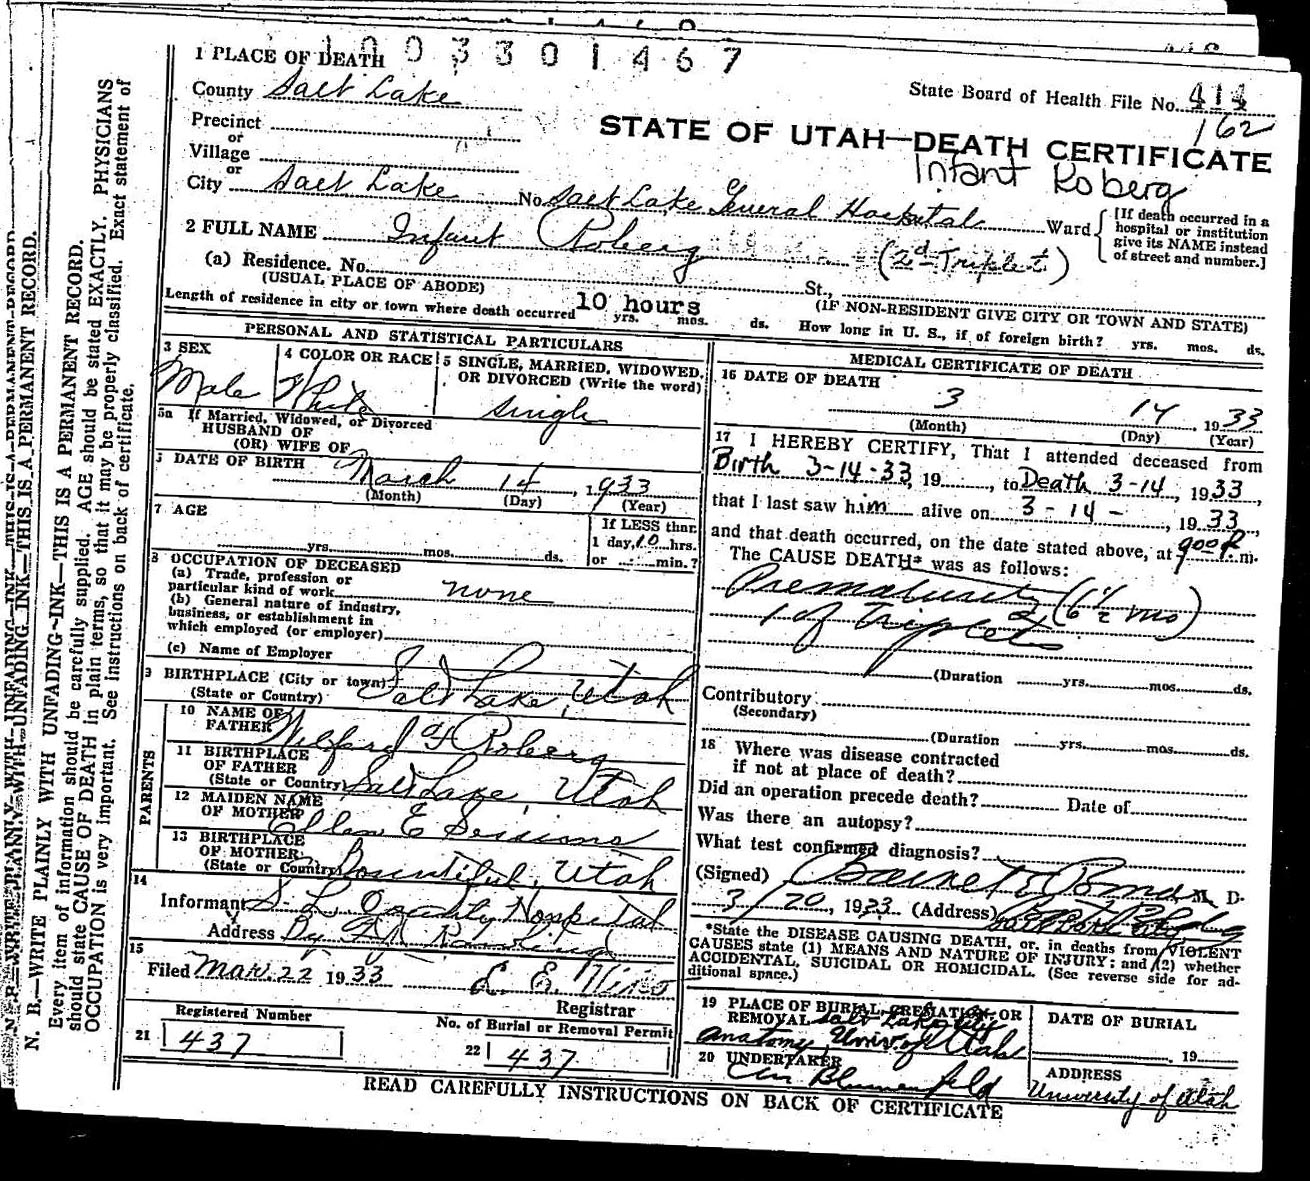 1003301467
1 PLACE OF DEATH
County Salt Lake
State Board of Health File No. 414
162
Precinct
or
Village
or
City Salt Lake No. Salt Lake General Hospital Ward
STATE OF UTAH—DEATH CERTIFICATE
Infant Roberg
[If death occurred in a
hospital or institution
give its NAME instead
of street and number.]
2 FULL NAME Infant Roberg (2d-Triplet)
(a) Residence. No. St.,
(USUAL PLACE OF ABODE) (IF NON-RESIDENT GIVE CITY OR TOWN AND STATE)
Length of residence in city or town where death occurred 10 hours yrs. mos. ds. How long in U. S., if of foreign birth? yrs. mos. ds.
PERSONAL AND STATISTICAL PARTICULARS
3 SEX
Male
4 COLOR OR RACE
White
5 SINGLE, MARRIED, WIDOWED,
OR DIVORCED (Write the word)
single
5a If Married, Widowed, or Divorced
HUSBAND OF
(OR) WIFE OF
DATE OF BIRTH March 14, 1933
(Month) (Day) (Year)
7 AGE
yrs. mos. ds.
If LESS than
1 day, 10 hrs.
or min.?
8 OCCUPATION OF DECEASED
(a) Trade, profession or
particular kind of work none
(b) General nature of industry,
business, or establishment in
which employed (or employer)
(c) Name of Employer
9 BIRTHPLACE (City or town)
(State or Country) Salt Lake, Utah
PARENTS
10 NAME OF
FATHER Wilford F Roberg
11 BIRTHPLACE
OF FATHER
(State or Country) Salt Lake, Utah
12 MAIDEN NAME
OF MOTHER Ellen E Sessions
13 BIRTHPLACE
OF MOTHER
(State or Country) Bountiful, Utah
14
Informant S. L. County Hospital
Address By
15
Filed Mar. 22 1933
Registrar
Registered Number
21 437
No. of Burial or Removal Permit
22 437
MEDICAL CERTIFICATE OF DEATH
16 DATE OF DEATH
3 14, 1933
(Month) (Day) (Year)
17 I HEREBY CERTIFY, That I attended deceased from
Birth 3-14-33, 19, to Death 3-14, 1933,
that I last saw him alive on 3-14-, 1933,
and that death occurred, on the date stated above, at 9:00 P. m.
The CAUSE DEATH* was as follows:
Prematurity (6 1/2 mo)
1 of Triplets
(Duration yrs. mos. ds.
Contributory
(Secondary)
(Duration yrs. mos. ds.
18 Where was disease contracted
if not at place of death?
Did an operation precede death? Date of
Was there an autopsy?
What test confirmed diagnosis?
(Signed) M. D.
3/20, 1933 (Address)
*State the DISEASE CAUSING DEATH, or, in deaths from VIOLENT
CAUSES state (1) MEANS AND NATURE OF INJURY; and (2) whether
ACCIDENTAL, SUICIDAL OR HOMICIDAL. (See reverse side for ad-
ditional space.)
19 PLACE OF BURIAL, CREMATION, OR
REMOVAL Salt Lake City
Anatomy, Univ of Utah
DATE OF BURIAL
, 19
20 UNDERTAKER
Blumenfeld
ADDRESS
University of Utah
READ CAREFULLY INSTRUCTIONS ON BACK OF CERTIFICATE
N. B.—WRITE PLAINLY WITH UNFADING INK—THIS IS A PERMANENT RECORD.
Every item of information should be carefully supplied. AGE should be stated EXACTLY. PHYSICIANS
should state CAUSE OF DEATH in plain terms, so that it may be properly classified. Exact statement of
OCCUPATION is very important. See instructions on back of certificate.